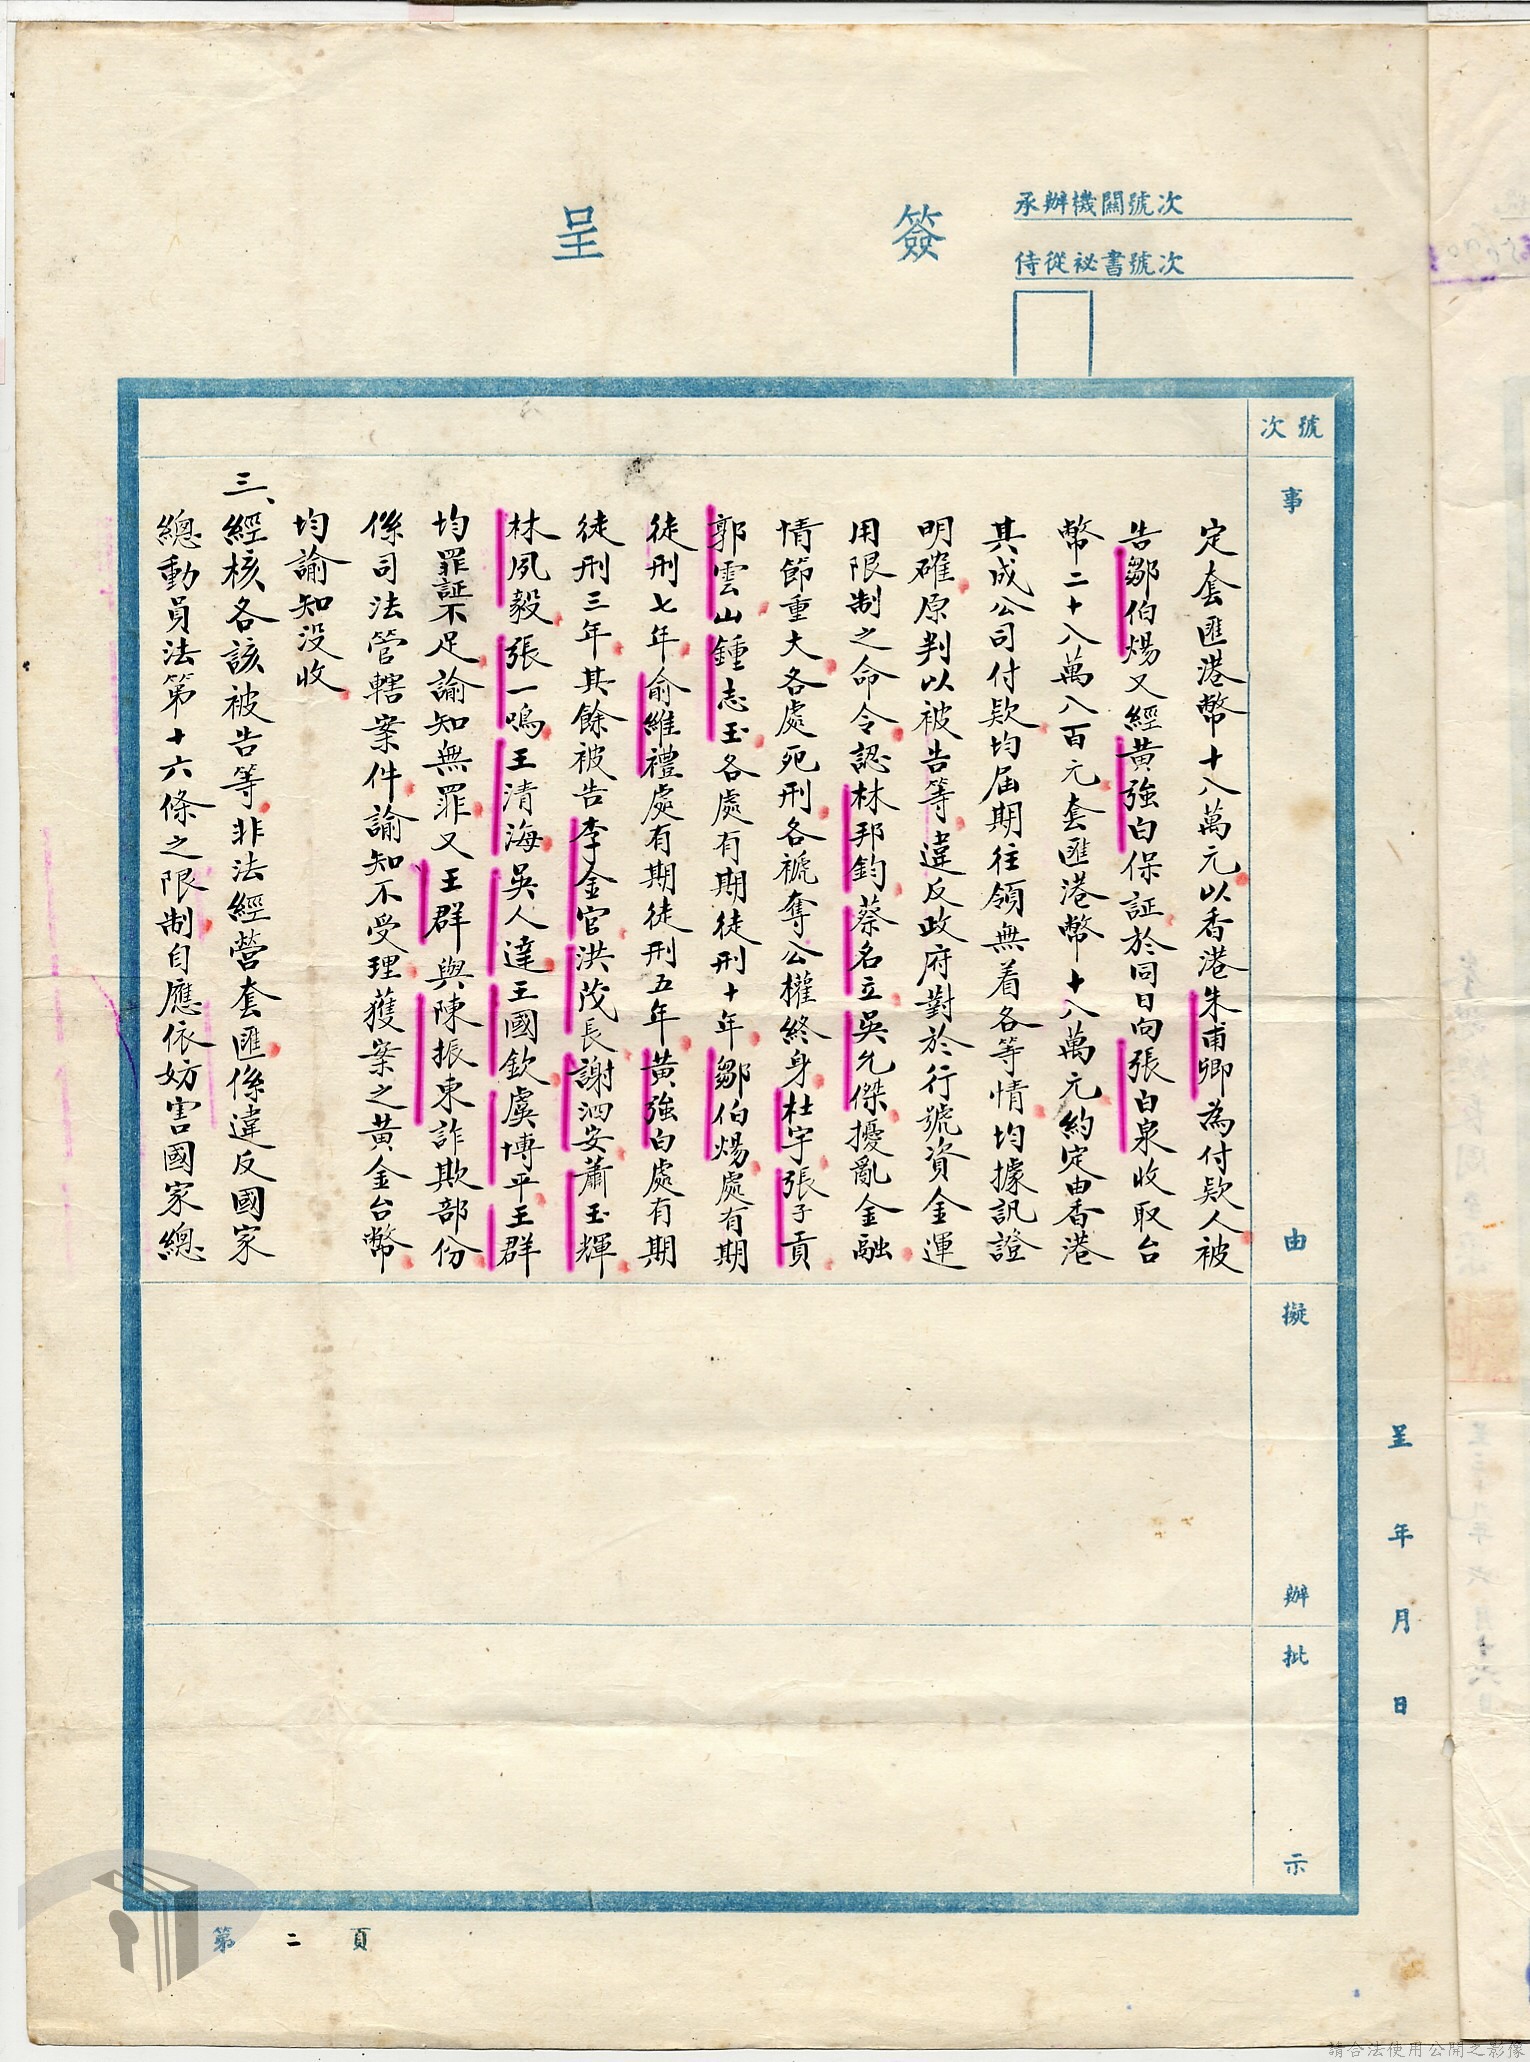 簽呈
承辦機關號次
侍從祕書號次
號次
事由
擬辦
批示
呈 年 月 日
定套匯港幣十八萬元以香港朱甫卿為付款人被
告鄒伯煬又經黃強白保証於同日向張白泉收取台
幣二十八萬八百元套匯港幣十八萬元約定由香港
其成公司付款均屆期往領無着各等情均據訊證
明確原判以被告等違反政府對於行號資金運
用限制之命令認林邦鈞蔡名立吳允傑擾亂金融
情節重大各處死刑各褫奪公權終身杜宇張子貢
郭雲山鍾志玉各處有期徒刑十年鄒伯煬處有期
徒刑七年俞維禮處有期徒刑五年黃強白處有期
徒刑三年其餘被告李金官洪茂長謝泗安蕭玉輝
林夙毅張一鳴王清海吳人達王國欽虞博平王群
均罪証不足諭知無罪又王群與陳振東詐欺部份
係司法管轄案件諭知不受理獲案之黃金台幣
均諭知沒收
三、經核各該被告等非法經營套匯係違反國家
總動員法第十六條之限制自應依妨害國家總
第二頁
請合法使用公開之影像